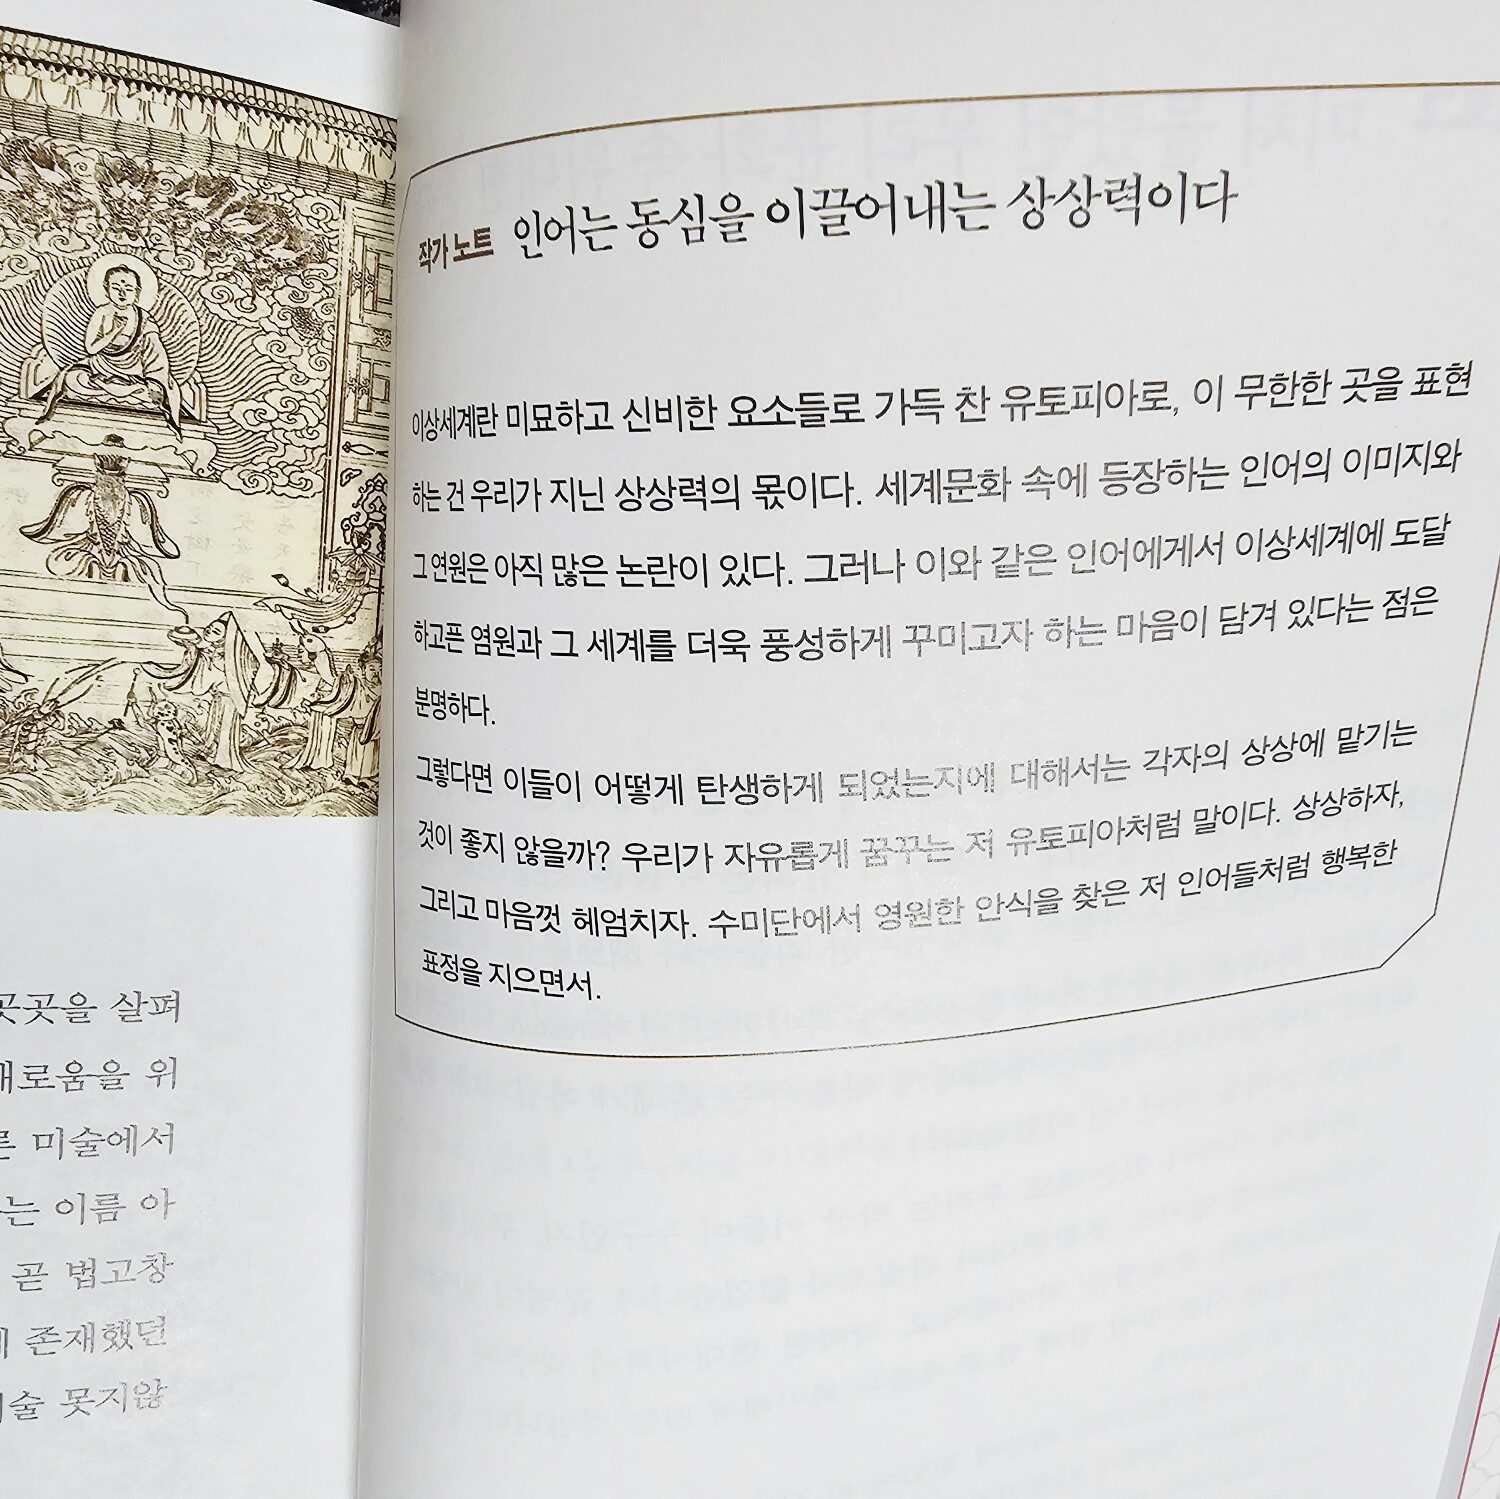 곳곳을 살펴
로움을 위
미술에서
는 이름 아
곧 법고창
존재했던
술 못지않
작가 노트 인어는 동심을 이끌어내는 상상력이다
이상세계란 미묘하고 신비한 요소들로 가득 찬 유토피아로, 이 무한한 곳을 표현
하는 건 우리가 지닌 상상력의 몫이다. 세계문화 속에 등장하는 인어의 이미지와
그 연원은 아직 많은 논란이 있다. 그러나 이와 같은 인어에게서 이상세계에 도달
하고픈 염원과 그 세계를 더욱 풍성하게 꾸미고자 하는 마음이 담겨 있다는 점은
분명하다.
그렇다면 이들이 어떻게 탄생하게 되었는지에 대해서는 각자의 상상에 맡기는
것이 좋지 않을까? 우리가 자유롭게 꿈꾸는 저 유토피아처럼 말이다. 상상하자,
그리고 마음껏 헤엄치자. 수미단에서 영원한 안식을 찾은 저 인어들처럼 행복한
표정을 지으면서.